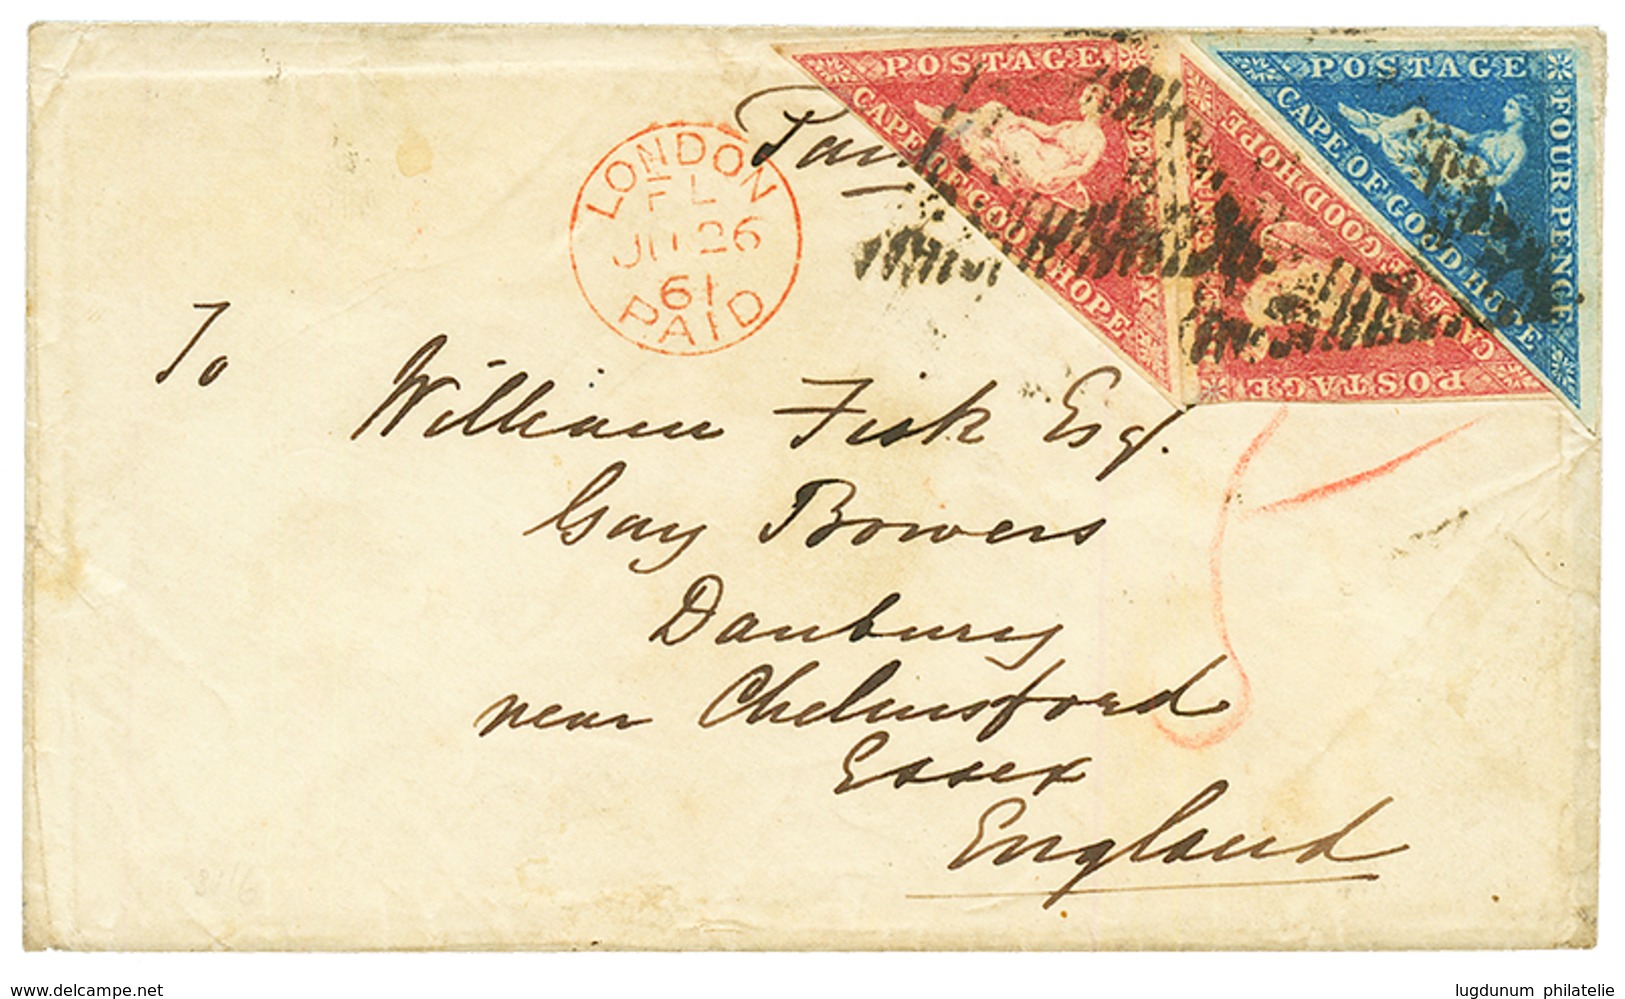 POSTAGE
CAPE OF GOOD HOPE
PENNY
POSTAGE
CAPE OF GOOD HOPE
POSTAGE
CAPE OF GOOD HOPE
FOUR PENCE
LONDON
FL
26
61
PAID
To
William Fisk Esq.
Gay Bowers
Danbury
near Chelmsford
Essex
England
www.delcampe.net
lugdunum philatelie